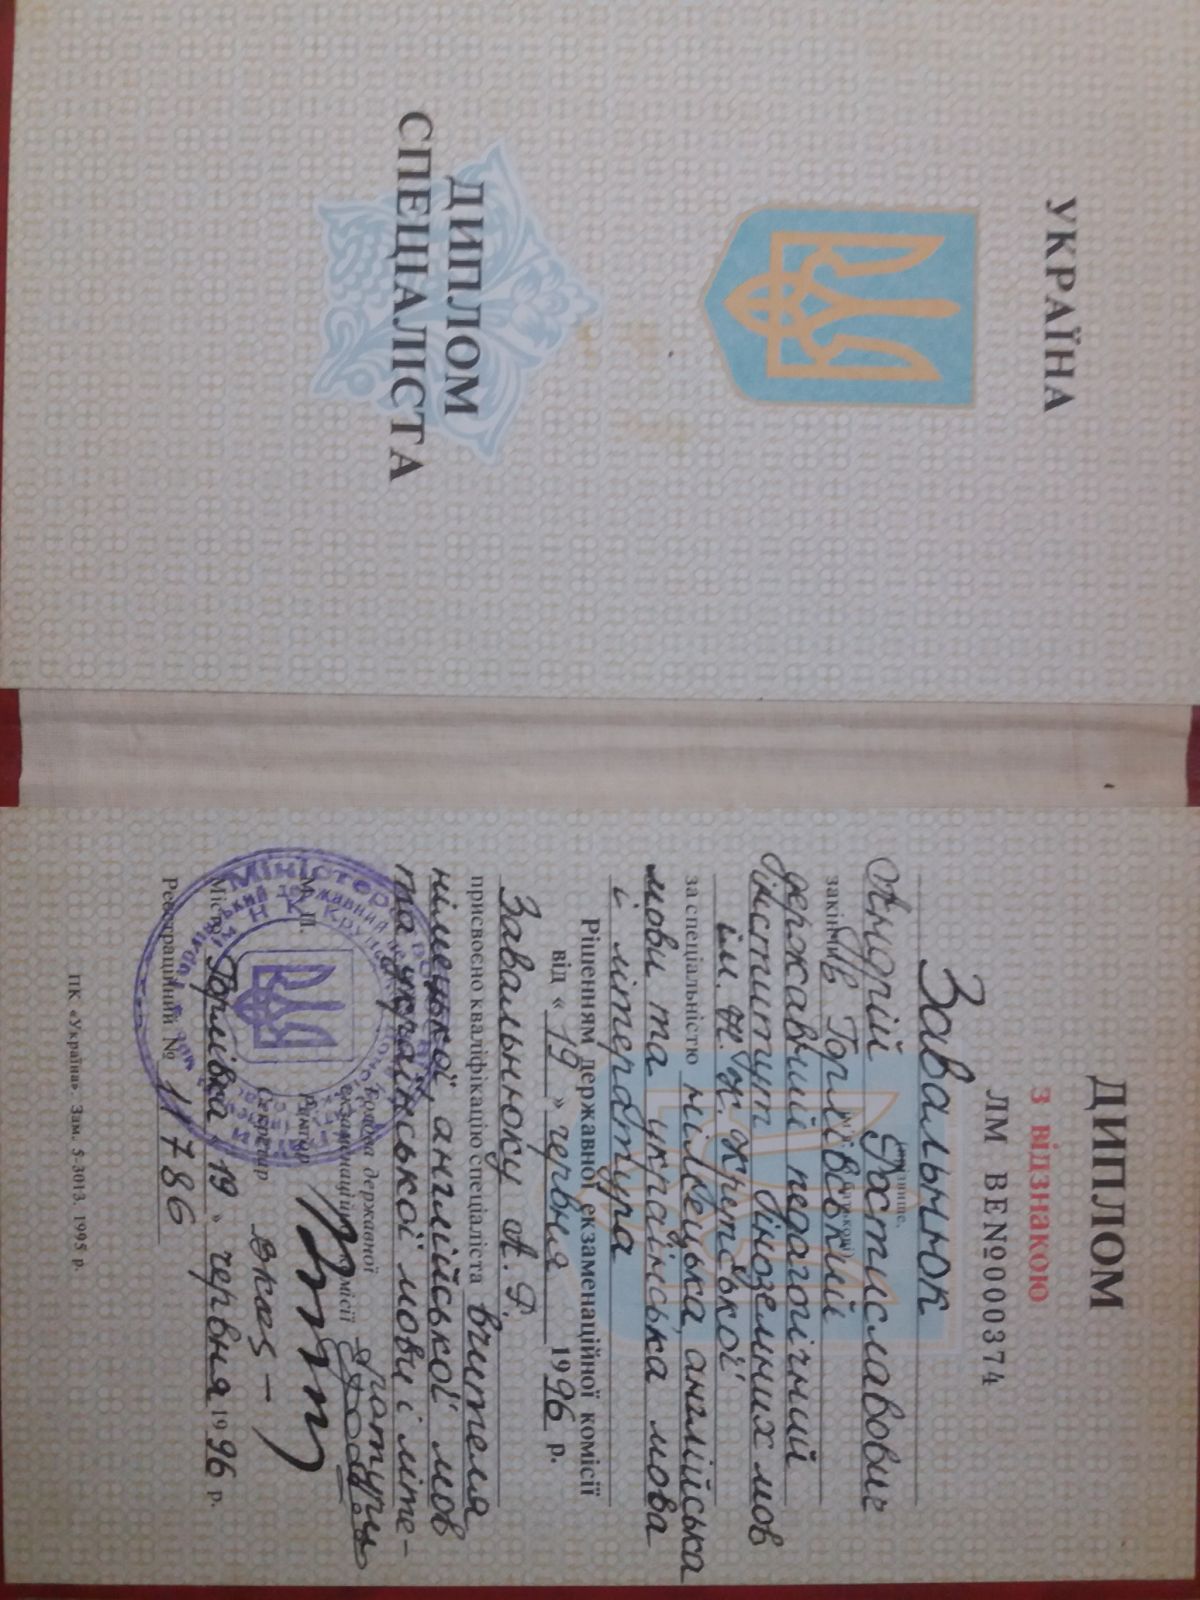 УКРАЇНА
ДИПЛОМ
СПЕЦІАЛІСТА
ДИПЛОМ
з відзнакою
ЛМ ВЕ№000374
Завальнюк
(прізвище,
Андрій Ростиславович
ім'я, по батькові)
закінчив Горлівський
державний педагогічний
інститут іноземних мов
ім. Н. К. Крупської
за спеціальністю німецька, англійська
мови та українська мова
і література
Рішенням державної екзаменаційної комісії
від «19» червня 1996 р.
Завальнюку А. Р.
присвоєно кваліфікацію спеціаліста вчителя
німецької, англійської мов
та української мови і літе-
ратури
Голова державної
екзаменаційної комісії
М. П. Ректор
Секретар
Місто Горлівка «19» червня 1996 р.
Реєстраційний № 11786
ПК «Україна». Зам. 5-3013. 1995 р.